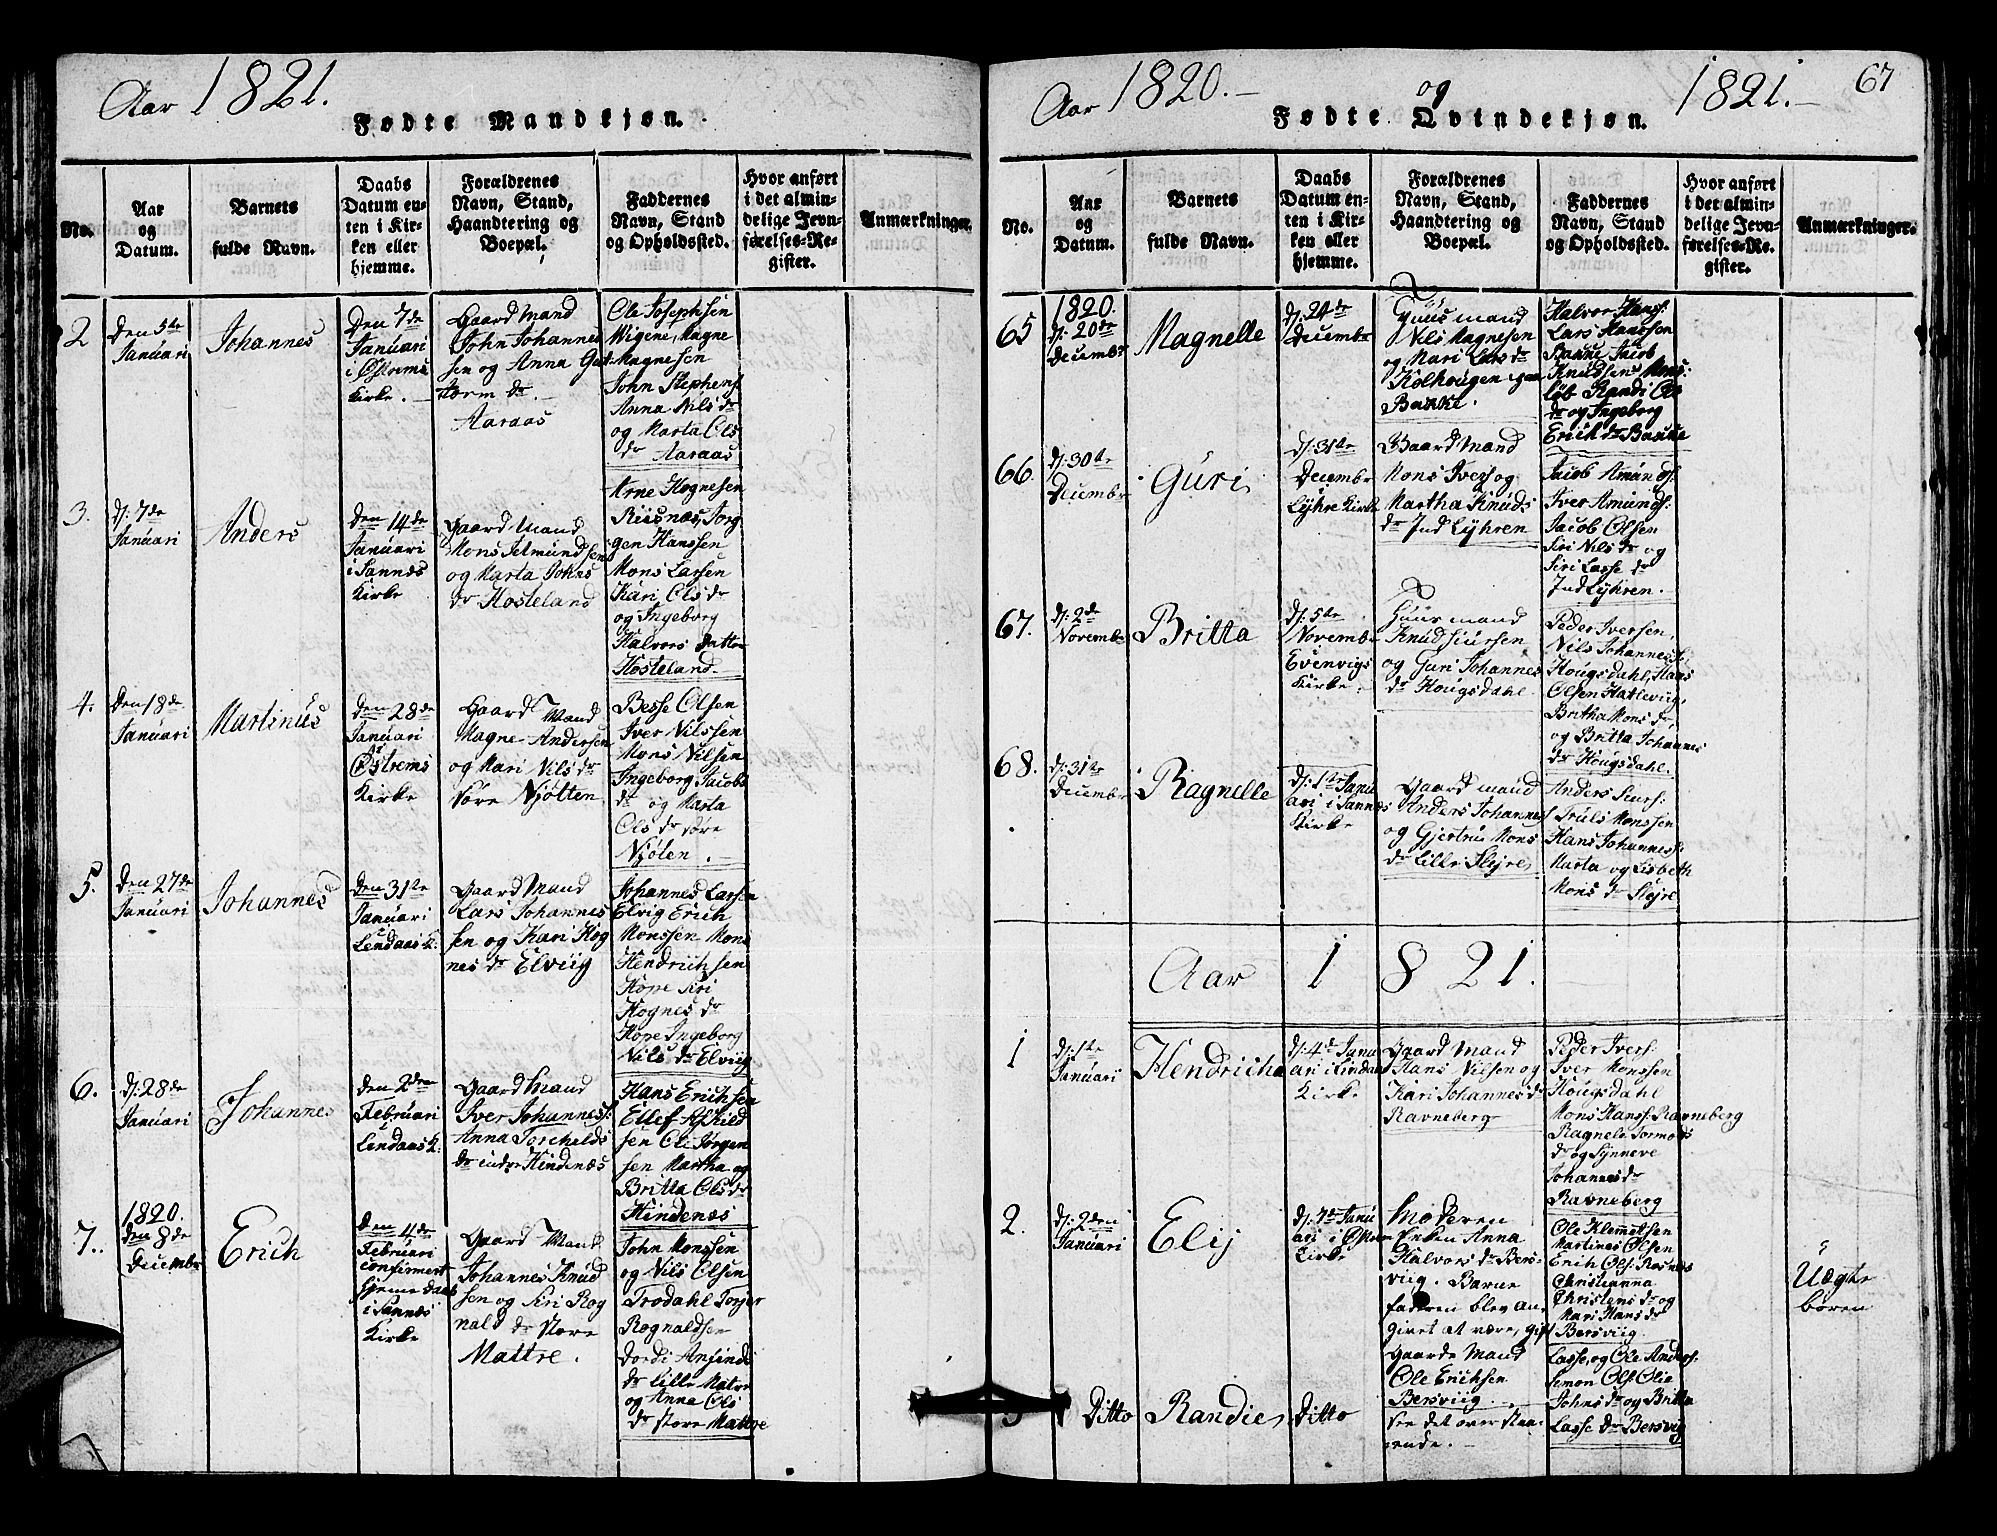 Aar 1821.
Fødte Mandkjøn.
No.
Aar
og
Datum.
Barnets
fulde Navn.
Daabs
Datum en-
ten i Kir-
ken eller
hjemme.
Forældrenes
Navn, Stand,
Haandtering og
Boepæl.
Faddernes
Navn, Stand
og Opholdssted.
Hvor anført
i det almin-
delige Jevn-
førelses-Re-
gister.
Anmærkninger.
2
Den 5te
Januari
Johannes
Den 7de
Januari
i Østrems
Kirke.
Gaard Mand
John Johannes
sen og Anna Gut
torm dr
Aaraas
Ole Josephsen
Wigine, Magne
Magnesen
John Stephens
Anna Nils dr
og Marta Ols
dr Aaraas
3.
d: 7de
Januari
Anders
Den 14de
Januari
i Sannes
Kirke
Gaard Mand
Mons Selmundsen
og Marta Johns
dr Hosteland
Arne Hognesen
Riisnæs, Jorg
gen Hanssen
Mons Larssen
Kari Ols dr
og Ingeborg
Halvors datter
Hosteland
4.
Den 18de
Januari
Martinus
Den 28de
Januari
Østrems
Kirke
Gaard Mand
Magne Andersen
og Mari Nils dr
Søre Njøtten
Besse Olsen
Iver Nilssen
Mons Nilsen
Ingeborg Jacobs
dr og Marta
Ols dr søre
Njøten.
5.
Den 27de
Januari
Johannes
Den 31te
Januari
Lendaas K:
Gaard Mand
Lars Johannes
sen og Kari Hog
nes dr Elviig
Johannes Larsen
Elvig Erich
Monssen Mons
Hendrichsen
Hope Siri
Hognes dr
Hope Ingeborg
Nils dr Elviig
6.
d: 28de
Januari
Johannes
den 2den
Februari
Lendaas K:
Gaard Mand
Iver Johannes:
Anna Torchelds
dr indre Hindenæs
Hans Erichsen
Ellef Askild
sen Ole Jørgen
sen Martha og
Britta Ols dr
Hindenæs
7.
1820.
den 8de
December
Erich
den 4de
Februari
confirmert
hjemme daab
i Sannæs
Kirke
Gaard Mand
Johannes Knud
sen og Siri Rog
nald dr Store
Mattre.
John Monssen
og Nils Olsen
Trodahl Torjer
Rognaldsen
Dordi Ansinds
dr Lille Matre
og Anna Ols
dr Store Mattre
Aar 1820. og 1821. 67
Fødte Qvindekjøn.
No.
Aar
og
Datum.
Barnets
fulde Navn.
Daabs
Datum en-
ten i Kir-
ken eller
hjemme.
Forældrenes
Navn, Stand,
Haandtering og
Boepæl.
Faddernes
Navn, Stand
og Opholdssted.
Hvor anført
i det almin-
delige Jevn-
førelses-Re-
gister.
Anmærkninger.
65
1820.
d: 20de
Decembr
Magnelle
d: 24de
Decembr
Huusmand
Nils Magnesen
og Mari Lars dr
Kolhougen
Bakke.
Halvor Hans:
Lars Hanssen
Bakke Jacob
Knudsen Mons:
Randi Ols
dr og Ingeborg
Erich dr Bakke
66.
d: 30te
Decembr
Guri
d: 31te
Decembr
Lyhre Kirke
Gaard Mand
Mons Ivers og
Martha Knuds
dr Ind Lyhren
Jacob Amunds:
Iver Amunds:
Jacob Olsen
Siri Nils dr og
Siri Lasse dr
Ind Lyhren.
67.
d: 2de
Novembr
Britta
d: 5te
Novembr
Evenvigs
Kirke.
Huusmand
Knud Siursen
og Guri Johannes
dr Hougsdahl
Peder Iversen,
Nils Johannes:
Hougsdahl, Hans
Olsen Hatleviig,
Britha Mons dr
og Britta Johannes
dr Hougsdahl.
68.
d: 31te
Decembr
Ragnelle
d: 1te Janu
ari i Sannes
Kirke
Gaard mand
Anders Johannes
og Gjertrue Mons
dr Lille Slejre
Anders Siurs:
Truls Monssen
Hans Johanness:
Marta og Lisbeth
Mons dr Slejre
Aar 1821.
1
d: 1te
Januari
Hendricha
d: 4de Janu
ari i Lindaas
Kirke
Gaard Mand
Hans Nilsen og
Kari Johannes dr
Ravneberg
Peder Ivers:
Iver Monssen
Hougsdahl
Mons Hanss: Ravneberg
Ragnele Tormods
dr og Synneve
Johannes dr
Ravneberg
2.
d: 2den
Januari
Elij
d: 7de Janu
ari i Østrem
Kirke
Moderen
Enken Anna
Halvors dr Bers
viig. Barne
faderen blev an
givet at være, gift
Gaards Mand
Ole Erichsen
Bersviig.
Ole Klemmetsen
Martines Olsen
Erich Ols: Rosnes
Christianna
Christens dr og
Mari Hans dr
Bersviig.
Uægte
børen
3
Ditto
Randie
Ditto
see det over staa
ende.
Lasse, og Ole Anders:
Simon Ols Olia
Johns dr og Britta
Lasse dr Bersvig